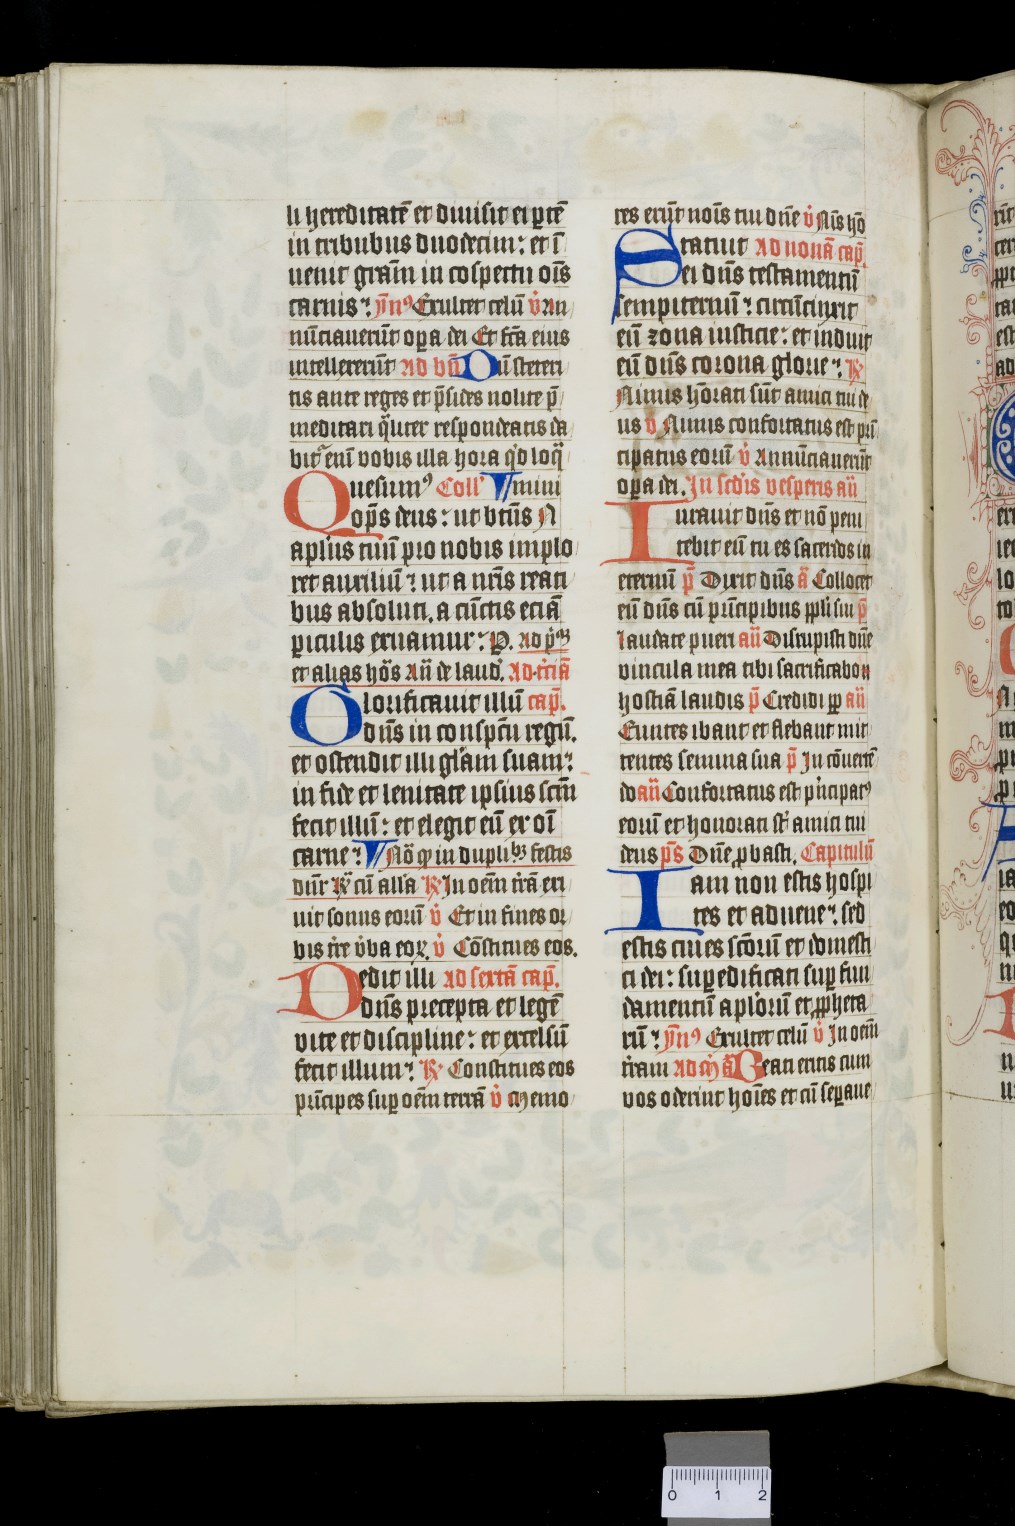 li hereditatē et diuisit ei ꝑtē
in tribubus duodecim: et ī
uenit grām in cōspectu oīs
carnis: ym̄ꝰ Exultet celū v̄ An
nūciauerūt oꝑa dei Et fc̄a eius
intellexerūt Ad bn̄ Dū steteri
tis ante reges et p̄sides nolite p̄
meditari qͣliter respondeatis da
bit᷑ eni᷑ vobis illa hora qͥd loqͣ
Quesumꝰ Coll' Omni
op̄s deus: ut btūs N
apl'us tuū pro nobis implo
ret auxiliū: ut a nr̄is reati
bus absoluti, a cūctis eciā
piculis exuamur: P. ad p̄ᵃᵐ
et alias hōs An̄ de laud'. Ad tciā
Glorificauit illū cap̄.
dn̄s in conspc̄tu regū.
et ostendit illi gl'am suam:
in fide et lenitate ipsius scm̄
fecit illū: et elegit eū ex oī
carne: Nō qͥ in duplibꝫ festis
dnr̄ R̄ cū all'a R̄ In oēm tr̄ā exi
uit sonus eorū v̄ Et in fines or
bis tr̄e v̄ba eoꝝ. v̄ Cōstitues eos.
Dedit illi Ad sextā cap̄.
dn̄s precepta et legē
vite et discipline: et excelsū
fecit illum: R̄ Constitues eos
pri͞cipes suꝑ oēm terrā v̄ Memo
res erūt noīs tui dn̄e v̄ Nīs hō
Statuit Ad nonā cap̄.
ei dn̄s testamentū
sempiternū: circūcinxit
eū zona iusticie: et induit
eū dn̄s corona glorie: R̄
Nimis hōrati sūt amici tui de
us v̄ Nimis confortatus est pri͞
cipatus eorū v̄ Annūciauerūt
oꝑa dei. In scd'is vesperis an̄
Iurauit dn̄s et nō peni
tebit eū tu es sacerdos in
eternū p̄ Dixit dn̄s ā Collocet
eū dn̄s cū pri͞cipibus ppl'i sui p̄
Laudate pueri an̄ Disrupisti dn̄e
vincula mea tibi sacrificabo
hostiā laudis p̄ Credidi ꝓp an̄
Euntes ibant et flebant mit
tentes semina sua p̄ In cōuertē
do an̄ Confortatus est pͥncipatꝰ
eorū et honorati sūt amici tui
deus p̄s Dn̄e ꝓbasti. Capitulū
Iam non estis hospi
tes et aduene: sed
estis ciues scōrū et domesti
ci dei: suꝑedificati suꝑ fun
damentū apl'orū et ꝓpheta
rū: ym̄ꝰ Exultet celū v̄ In oēm
tr̄am Ad mͣ ā Beati eritis cum
vos oderint hoīes et cū seꝑaue